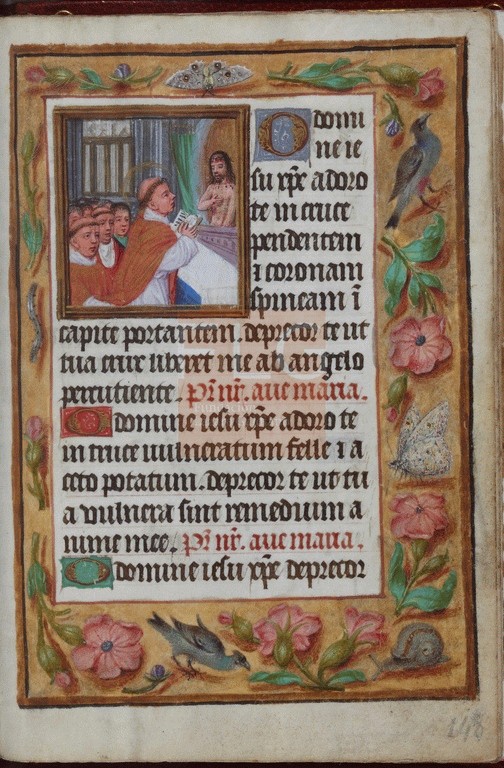 O domi
ne ie
su xpe adoro
te in cruce
pendentem
z coronam
spineam i
capite portantem. deprecor te ut
tua crux liberet me ab angelo
percutiente. Pr nr. aue maria.
O domine iesu xpe adoro te
in cruce vulneratum felle z a
ceto potatum. deprecor te ut tu
a vulnera sint remedium a
nime mee. Pr nr. aue maria.
O domine iesu xpe deprecor
148